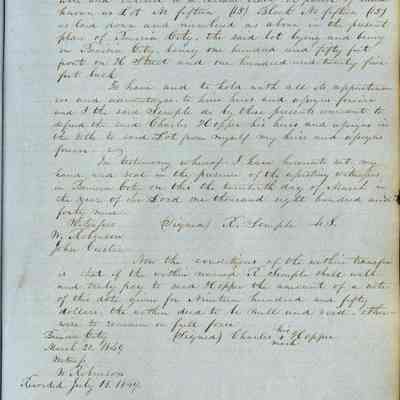 known as Lot No fifteen (15) Block No fifteen (15)
as laid down and numbered as above in the present
plan of Benicia City, the said lot lying and being
in Benicia City, being one hundred and fifty feet
front on H Street and one hundred and twenty five
feet back
To have and to hold with all its
and to him heirs and assigns forever
and I the said Semple do by these presents covenant to
defend the said Charles Hopper his heirs and assigns in
the title to said Lot from myself my heirs and assigns
forever
In testimony whereof I have hereunto set my
hand and seal in the presence of the witnesses
in Benicia City on this the twentieth day of March in
the year of our Lord one thousand eight hundred and
forty nine
Witnesses (Signed) R. Semple L.S.
W. Robinson
John
Now the conditions of the within transfer
is that if the within named R Semple shall well
and truly pay to said Hopper the amount of a note
of this date given for Nineteen hundred and fifty
dollars, the within deed to be null and void other
wise to remain in full force
Benicia City (Signed) Charles his x mark Hopper
March 20 1849
Witness
W Robinson
Recorded July 11. 1849